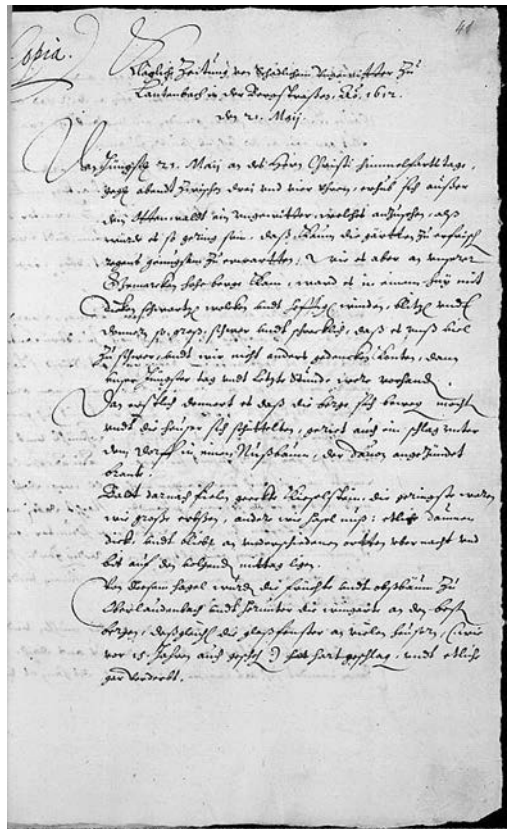 41
Copia.
Klägliche Zeitung von Schädlichem Ungewitter Zu
Lautenbach in der Bergstrassen, Ao. 1612.
den 21. Maij
Den Jüngsten 21. Maij an des Hern Christi himmelfartts tage,
gegen abendt Zwischen drei vnd vier Uhren, erhub sich außer
dem Ottenwaldt ein ungewitter, welches anzusehen, alß
würde es so gering sein, daß kaum die gärtten Zu erfrisch
regens genugsam Zu erwartten, wie es aber an unsere
Gemarcken hohe berge kam, ward es in einem huy mit
dicken schwartzen wolcken undt hefftigen winden, blitzen undt
donnern so groß, schwer undt schrecklich, daß es muß viel
Zu schwer, undt wir nicht anders gedencken konten, dann
unser Jüngster tag undt letzte Stunde were vorhanden.
Dan erstlich donnert es daß die berge sich beweg mocht
undt die heuser sich schüttelten, geriet auch ein schlag unter
dem dorff in einen Nußbaum, der davon angezündet
brante.
Baldt darnach fielen Kieselstein, die geringste waren
wie große erbßen, andere wie hasel nuß: etliche daumen
dick undt blieb an underschiedenen ortten uber nacht und
biß auf den volgenden mittag ligen.
Von diesem hagel wurden die früchte undt obßbäum Zu
Oberlaudenbach undt herunder die wingärte an den
bergen, deßgleichen die glaßfenster an vielen häusern, (wie
vor 15. Jahren auch geschehen) hart geschlagen, undt etliche
gar verderbt.